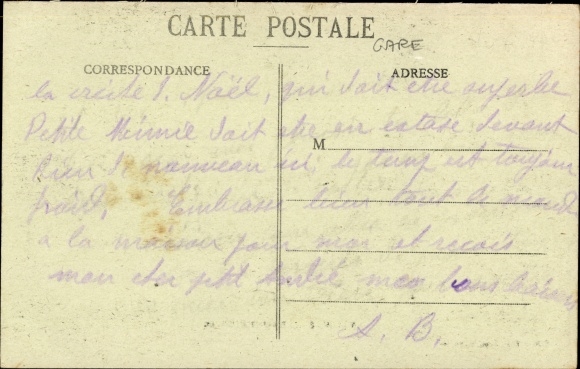 CARTE POSTALE
GARE
CORRESPONDANCE
ADRESSE
la crèche d. Noël, qui doit être superbe
Petite Mimie doit être en extase devant
rien de nouveau ici, le temps est toujours
froid, Embrasse bien tout le monde
à la maison pour moi et reçois
mon cher petit André mes bons baisers
A. B.
M